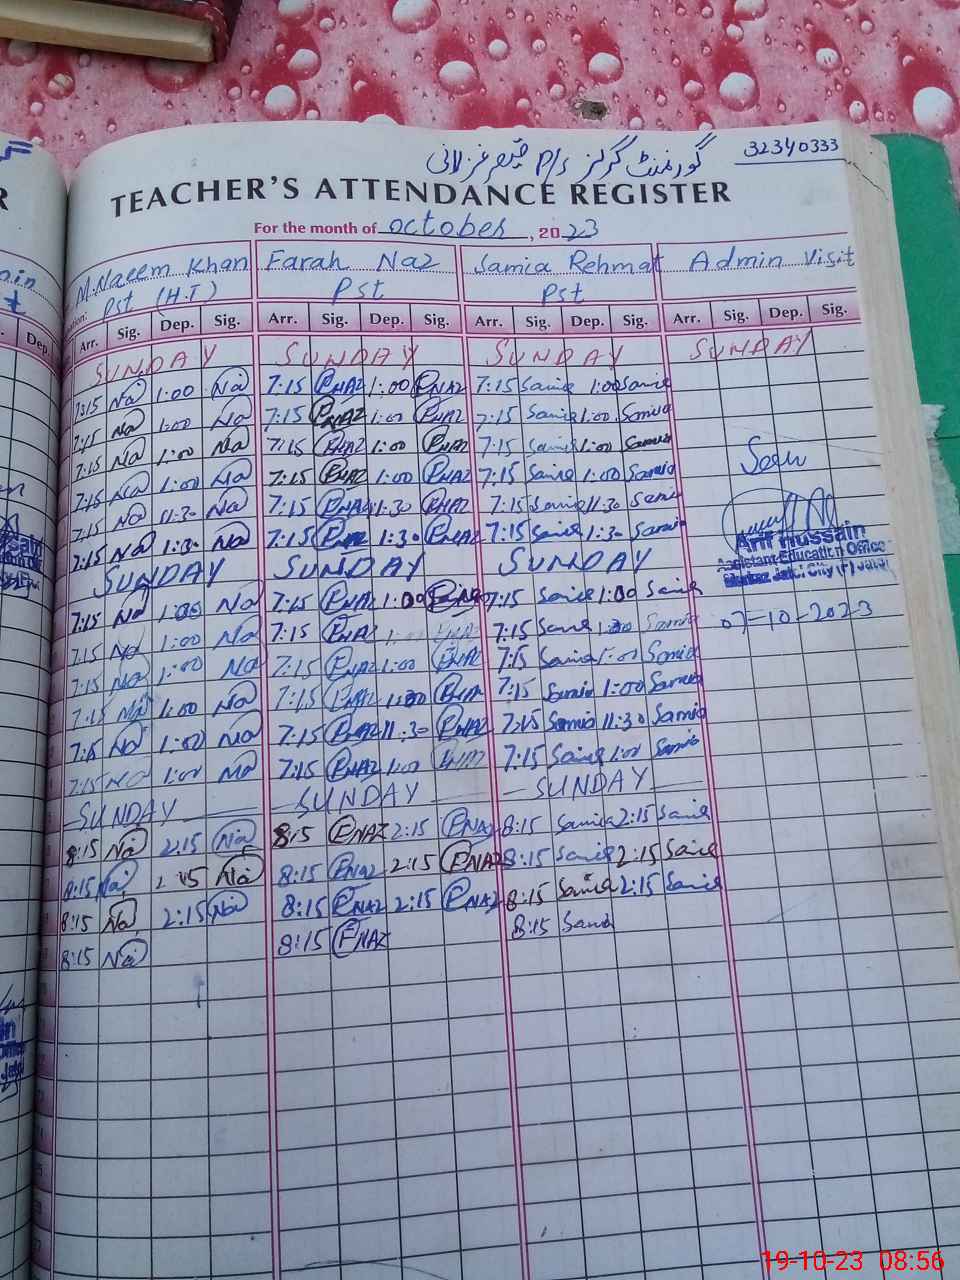 گورنمنٹ گرلز P/s 32340333
TEACHER'S ATTENDANCE REGISTER
For the month of October, 2023
M.Naeem Khan Farah Naz Samia Rehmat Admin Visit
Pst (H.T) Pst Pst
Dep. Arr. Sig. Dep. Sig. Arr. Sig. Dep. Sig. Arr. Sig. Dep. Sig. Arr. Sig. Dep. Sig.
SUNDAY SUNDAY SUNDAY SUNDAY
7:15 Na 1:00 Na 7:15 FNAZ 1:00 FNAZ 7:15 Samia 1:00 Samia
7:15 Na 1:00 Na 7:15 FNAZ 1:00 FNAZ 7:15 Samia 1:00 Samia
7:15 Na 1:00 Na 7:15 FNAZ 1:00 FNAZ 7:15 Samia 1:00 Samia
7:15 Na 1:00 Na 7:15 FNAZ 1:00 FNAZ 7:15 Samia 1:00 Samia Seen
7:15 Na 11:30 Na 7:15 FNAZ 11:30 FNAZ 7:15 Samia 11:30 Samia
7:15 Na 1:30 Na 7:15 FNAZ 1:30 FNAZ 7:15 Samia 1:30 Samia Arif Hussain
SUNDAY SUNDAY SUNDAY Assistant Education Office
Markaz City (F)
7:15 Na 1:00 Na 7:15 FNAZ 1:00 FNAZ 7:15 Samia 1:00 Samia 07-10-2023
7:15 Na 1:00 Na 7:15 FNAZ 1:00 FNAZ 7:15 Samia 1:00 Samia
7:15 Na 1:00 Na 7:15 FNAZ 1:00 FNAZ 7:15 Samia 1:00 Samia
7:15 Na 1:00 Na 7:15 FNAZ 1:00 FNAZ 7:15 Samia 1:00 Samia
7:15 Na 1:00 Na 7:15 FNAZ 11:30 FNAZ 7:15 Samia 11:30 Samia
7:15 Na 1:00 Na 7:15 FNAZ 1:00 FNAZ 7:15 Samia 1:00 Samia
SUNDAY SUNDAY SUNDAY
8:15 Na 2:15 Na 8:15 FNAZ 2:15 FNAZ 8:15 Samia 2:15 Samia
8:15 Na 2:15 Na 8:15 FNAZ 2:15 FNAZ 8:15 Samia 2:15 Samia
8:15 Na 2:15 Na 8:15 FNAZ 2:15 FNAZ 8:15 Samia 2:15 Samia
8:15 Na 8:15 FNAZ 8:15 Samia
19-10-23 08:56